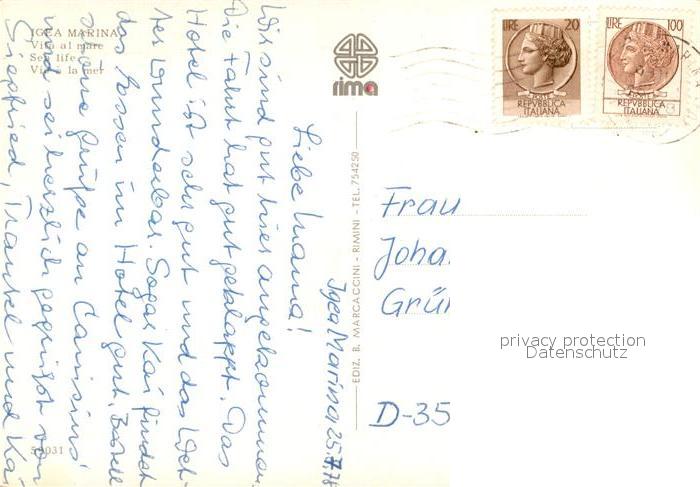 IGEA MARINA
Vita al mare
Sea life
Vie à la mer
rima
LIRE 20
POSTE
REPVBBLICA
ITALIANA
LIRE 100
POSTE
REPVBBLICA
ITALIANA
EDIZ. B. MARCACCINI - RIMINI - TEL. 754250
Igea Marina 25.7.78
Liebe Mama!
Wir sind gut hier angekommen.
Die Fahrt hat gut geklappt. Das
Hotel ist sehr gut und das Wet-
ter wunderbar. Sogar Kai findet
das Essen im Hotel gut.
schöne Grüße an
und sei herzlich gegrüßt von
Siegfried, Traudel und Kai
Frau
Joha
Grün
D-35
privacy protection
Datenschutz